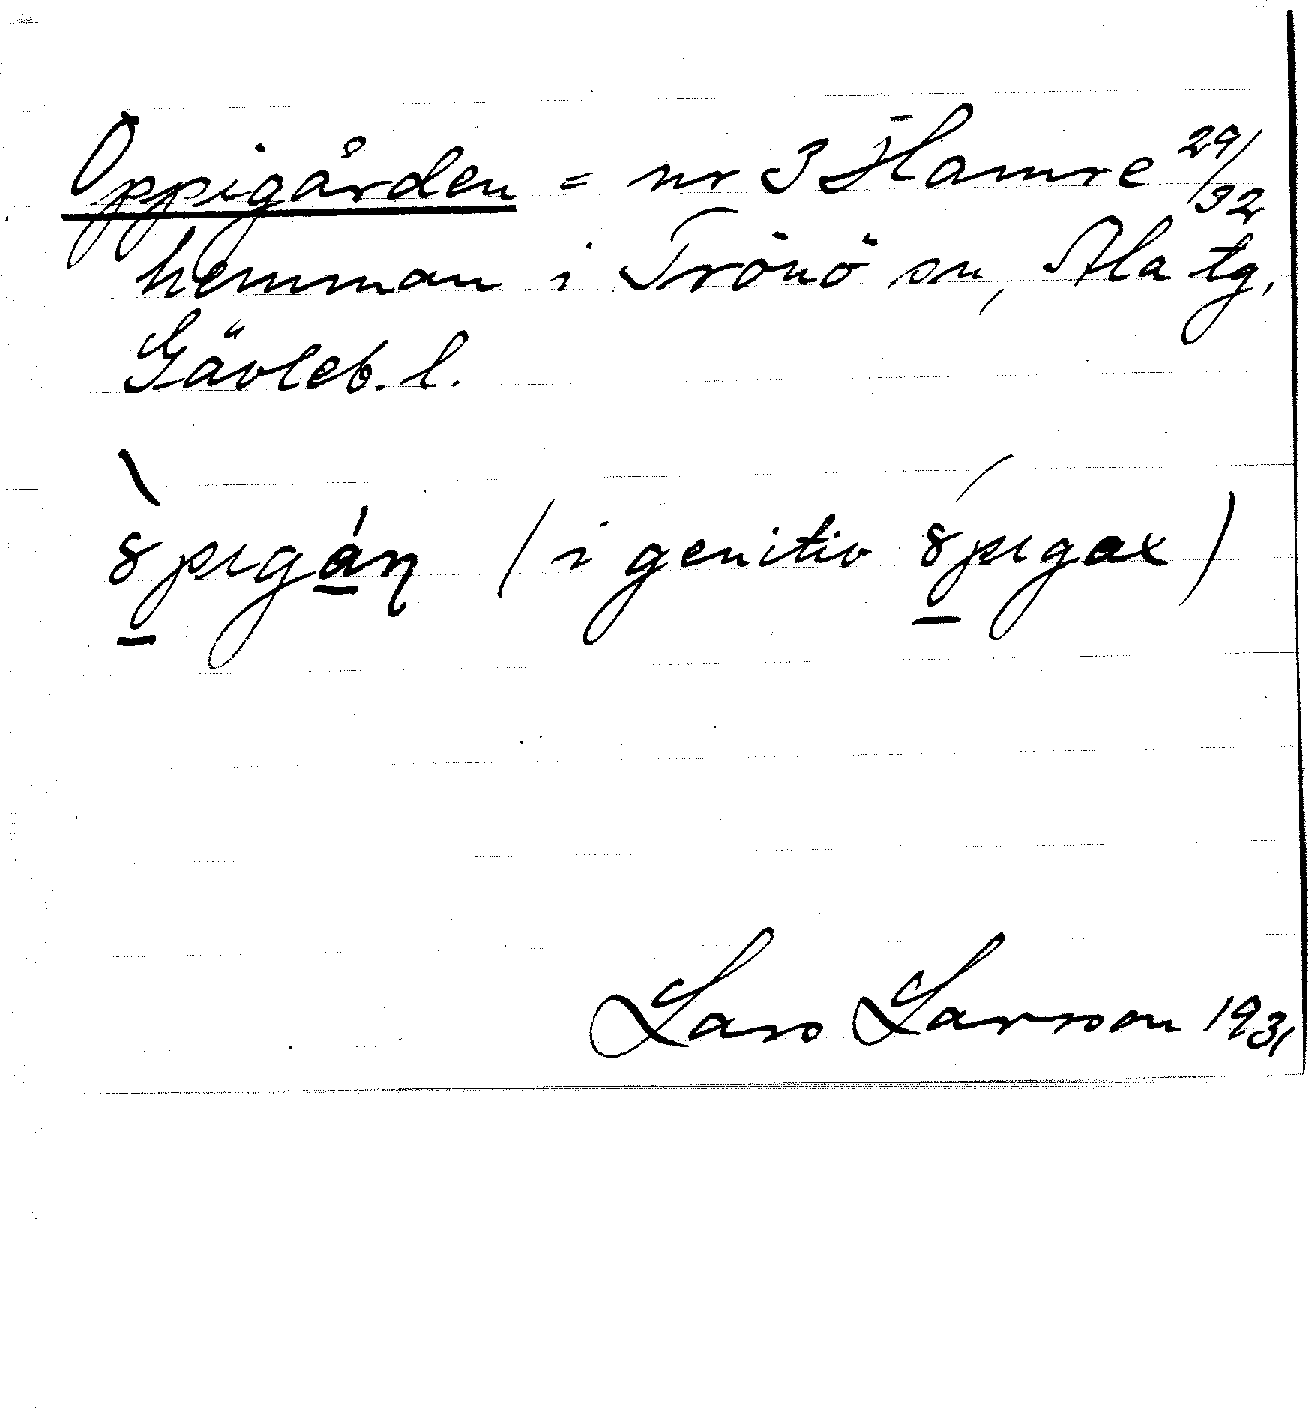 Oppigården = nr 3 Hamre 29/32
hemman i Trönö sn, Ala tg,
Gävleb. l.
(i genitiv
Lars Larsson 1931